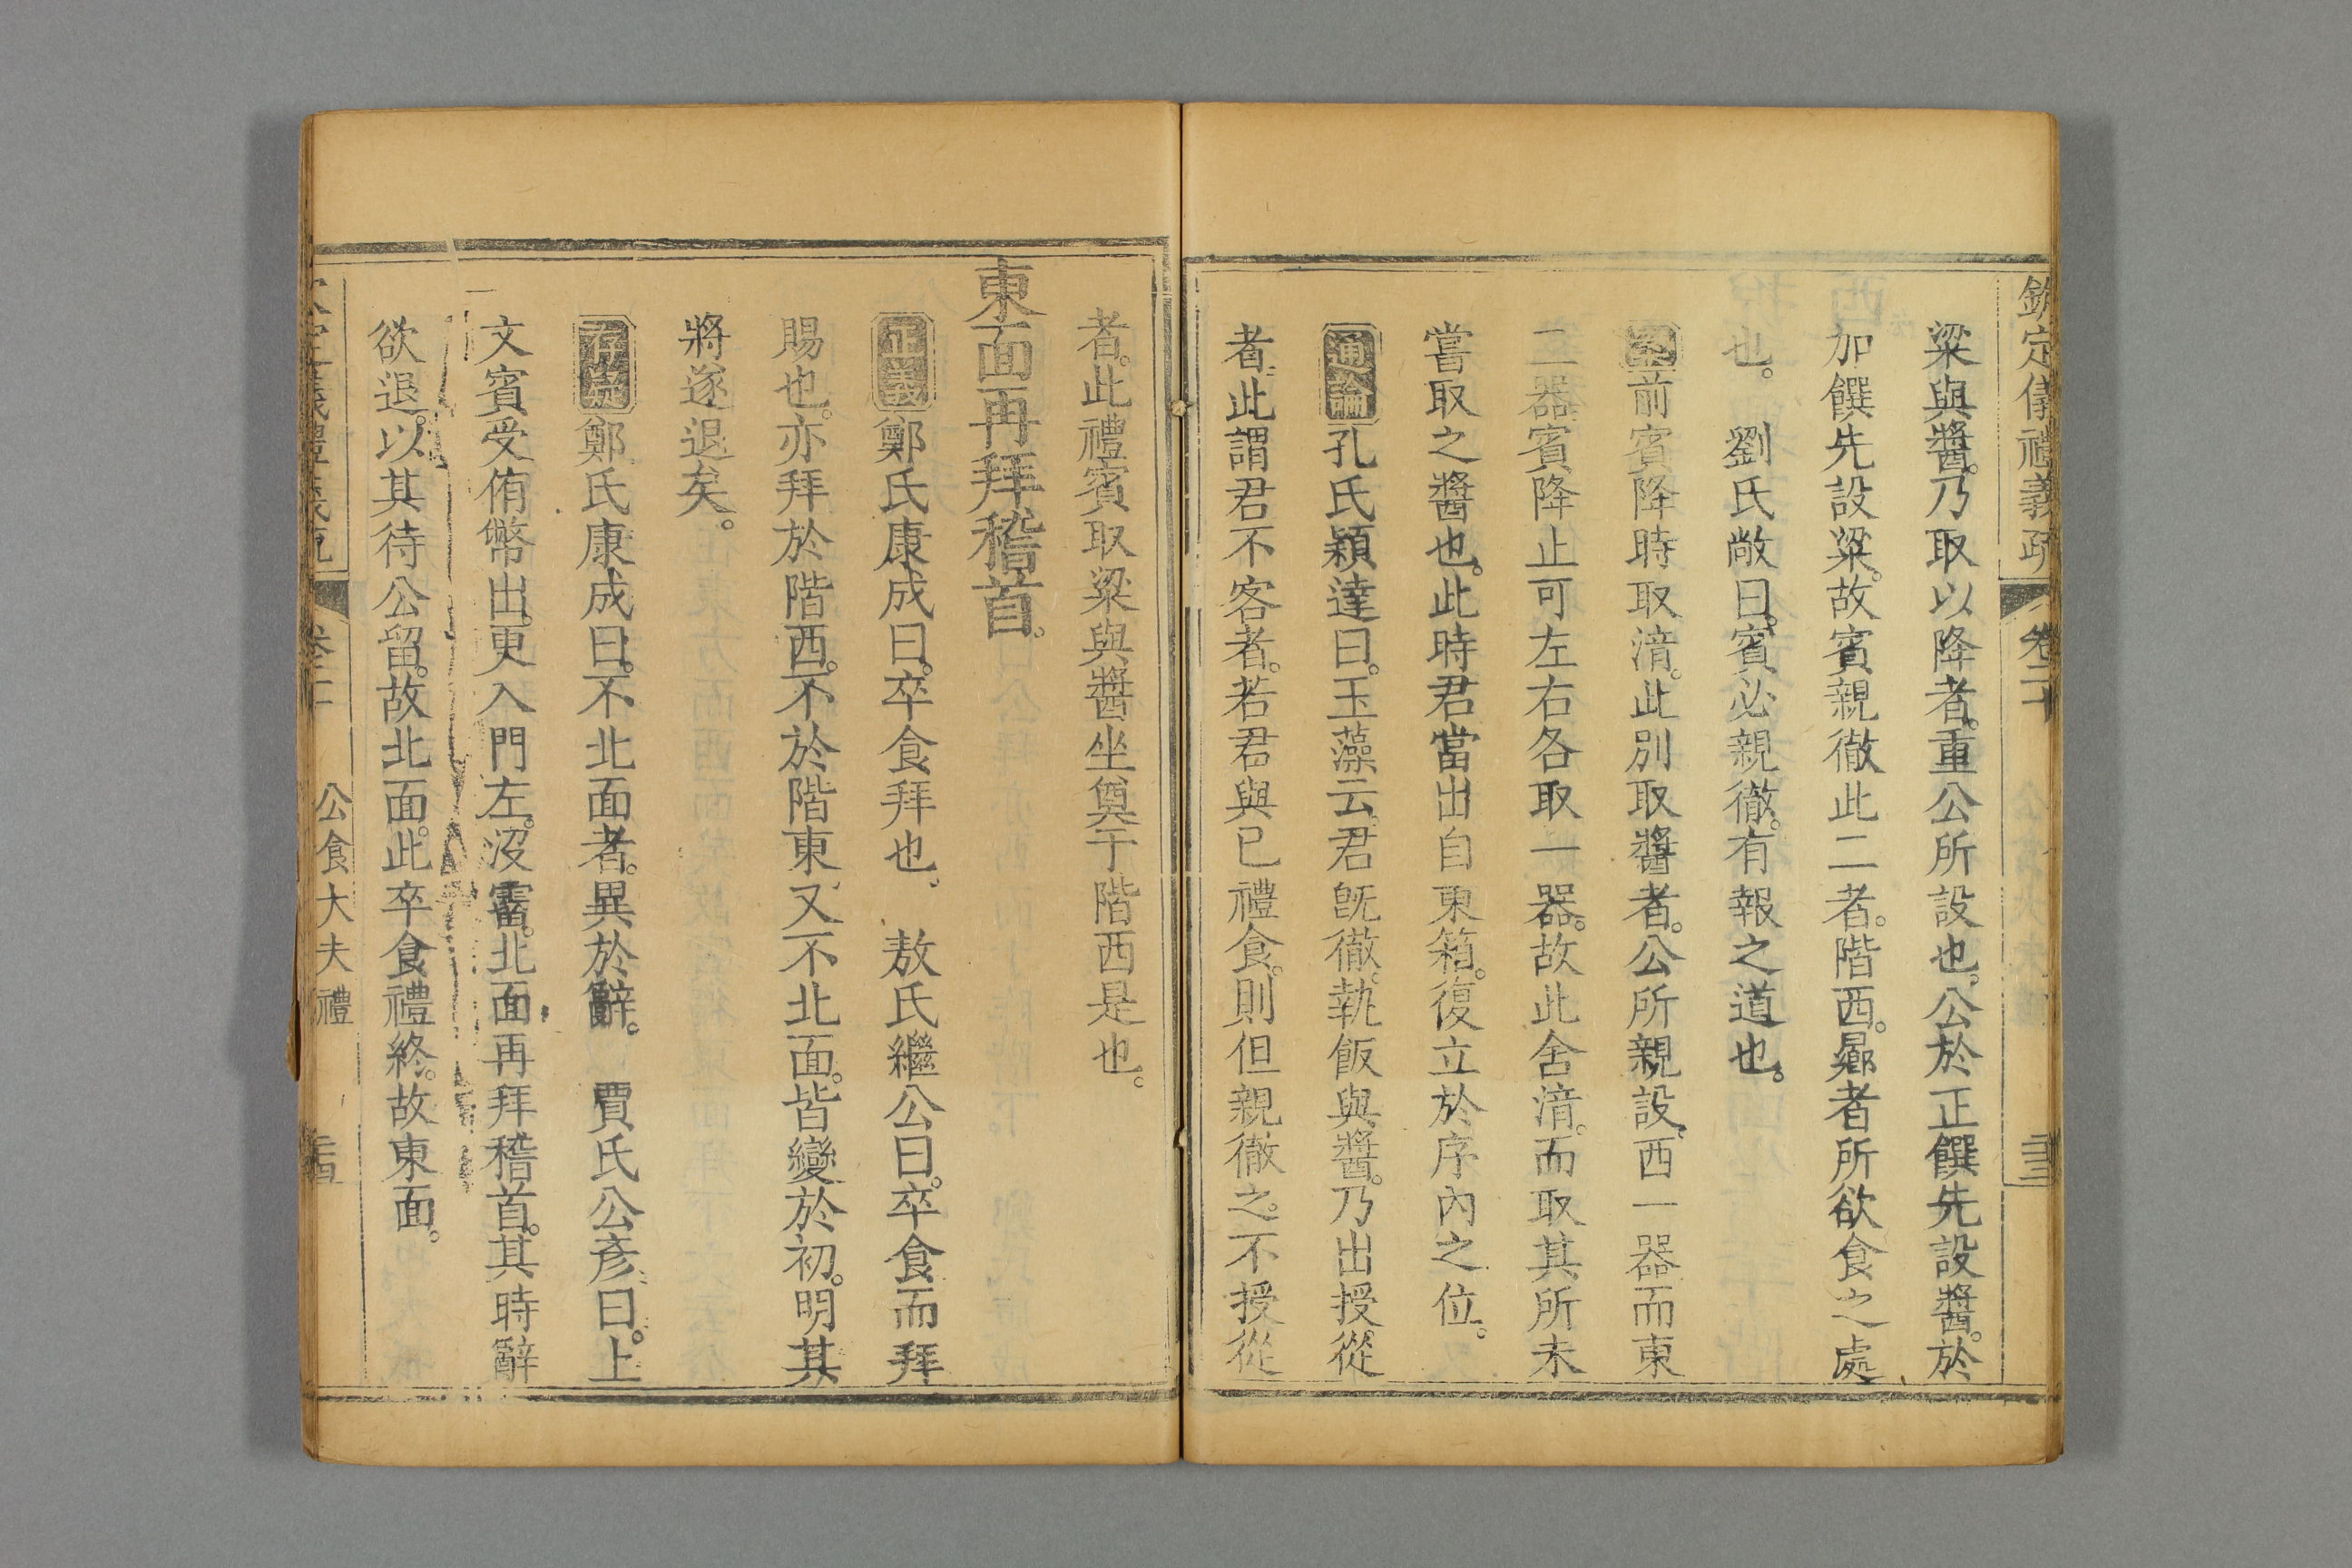 欽定儀禮義疏 卷二十
粱與醬。乃取以降者。重公所設也。公於正饌先設醬。於
加饌先設粱。故賓親徹此二者。階西。曏者所欲食之處
也。 劉氏敞曰。賓必親徹。有報之道也。
案前賓降時取湆。此別取醬者。公所親設。西一器而東
二器。賓降止可左右各取一器。故此舍湆。而取其所未
嘗取之醬也。此時君當出自東箱。復立於序內之位。
通論孔氏穎達曰。玉藻云。君旣徹。執飯與醬。乃出授從
者。此謂君不客者。若君與已禮食。則但親徹之。不授從
者。此禮賓取粱與醬坐奠于階西是也。
東面再拜稽首。
正義鄭氏康成曰。卒食拜也。 敖氏繼公曰。卒食而拜
賜也。亦拜於階西。不於階東又不北面。皆變於初。明其
將遂退矣。
存疑鄭氏康成曰。不北面者。異於辭。 賈氏公彥曰。上
文賓受侑幣出。更入門左。沒霤。北面再拜稽首。其時辭
欲退。以其待公留。故北面。此卒食禮終。故東面。
公食大夫禮